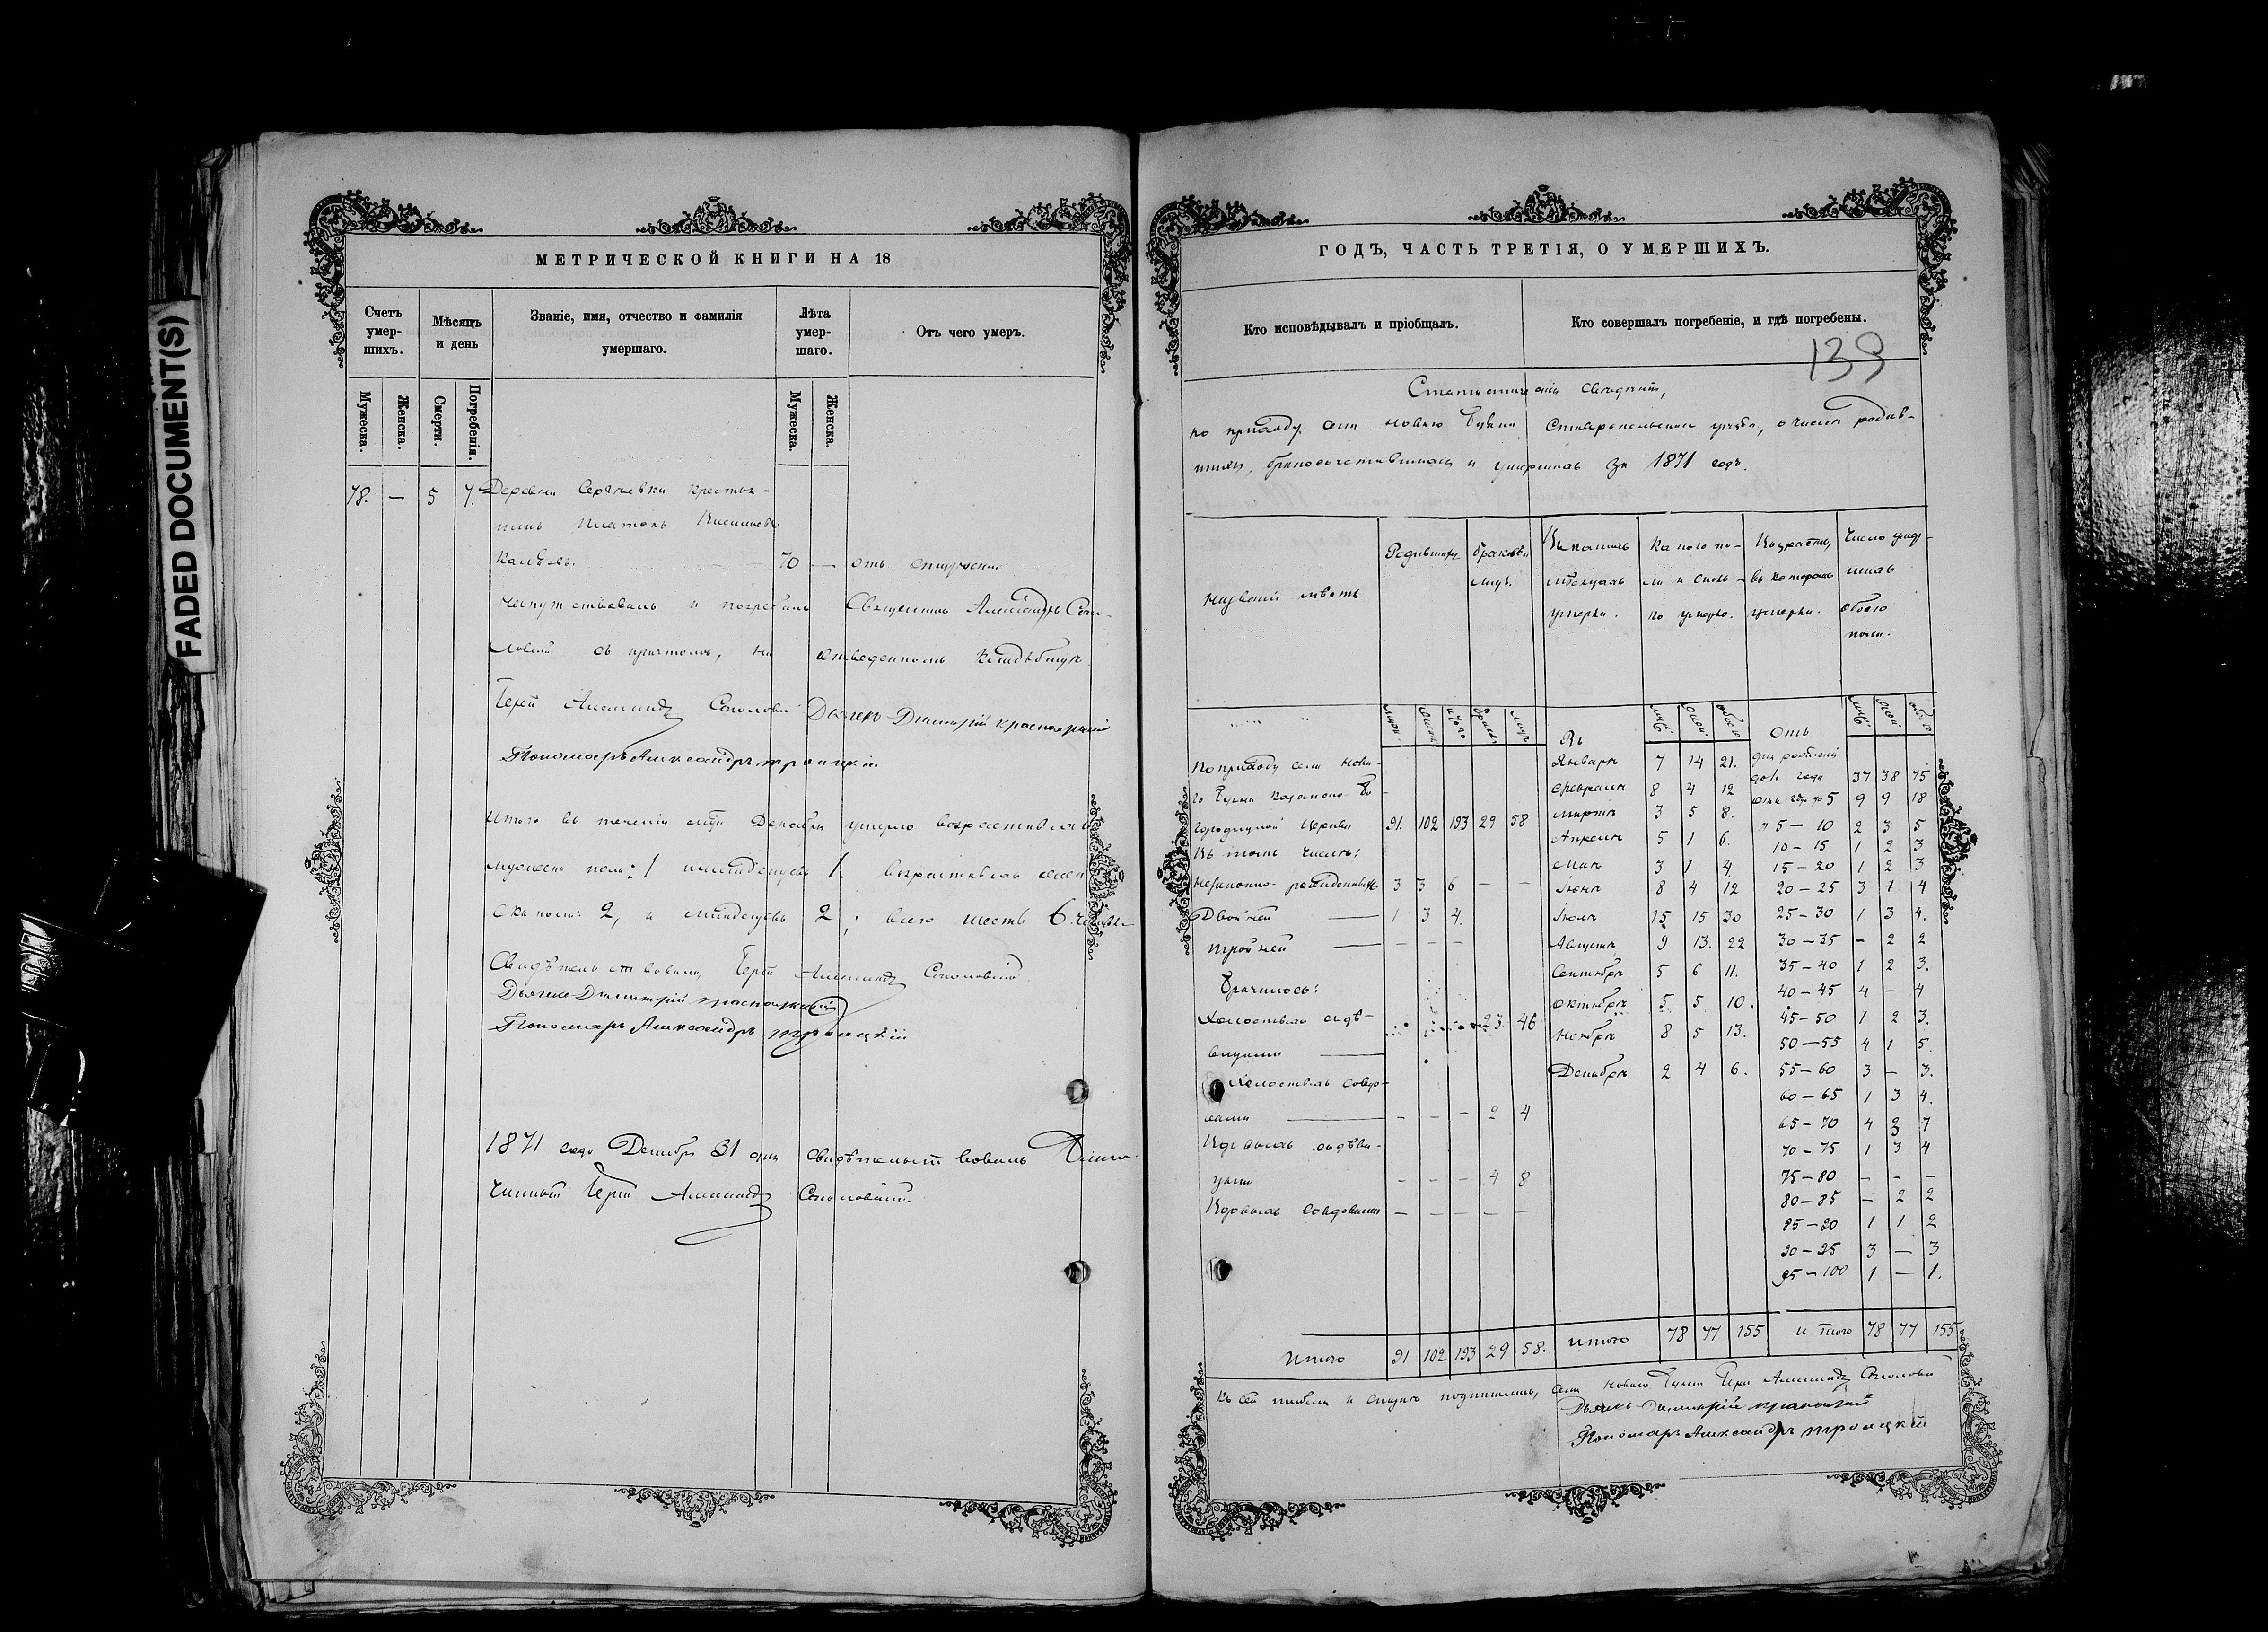 FADED DOCUMENT(S)
МЕТРИЧЕСКОЙ КНИГИ НА 18
Счетъ умер-шихъ.
Мѣсяцъ и день
Званіе, имя, отчество и фамилія умершаго.
Лѣта умер-шаго.
Отъ чего умеръ.
Мужеска.
Женска.
Смерти.
Погребенія.
Мужеска.
Женска.
78. — 5 7. Деревни Сергѣевки крестья-
нинъ Платонъ
70 — отъ старости
напутствовалъ и погребалъ Священникъ Александръ Соко-
ловскій съ причтомъ, на отведенномъ кладбищѣ
Іерей Александръ Соколовскій Дьячекъ Димитрій Красноярскій
Пономарь Александръ Троицкій
Итого въ теченіи мѣсяца Декабря умерло возрастныхъ
мужеска пола: 1 младенцевъ 1. возрастныхъ жен-
ска пола: 2, а младенцевъ 2, всего шесть 6.
Свидѣтельствовали Іерей Александръ Соколовскій
Дьячекъ Димитрій Красноярскій
Пономарь Александръ Троицкій
1871 года Декабря 31 дня свидѣтельствовалъ Благо-
чинный Іерей Александръ Соколовскій.
ГОДЪ, ЧАСТЬ ТРЕТІЯ, О УМЕРШИХЪ.
Кто исповѣдывалъ и пріобщалъ.
Кто совершалъ погребеніе, и гдѣ погребены.
139
по приходу села Новаго Буяна Ставропольскаго уѣзда, о числѣ родив-
шихся, бракосочетавшихся и умершихъ за 1871 годъ.
Названіе мѣстъ
Родившихся
Въ какихъ мѣсяцахъ умерли.
Какого по-ла и сколь-ко умерло.
Возрасты, въ которыхъ умерли.
Число умер-шихъ обоего пола.
Въ
Отъ
По приходу села Нова-
го Буяна Казанско-Бо-
городицкой Церкви 91. 102 193 29 58
Въ томъ числѣ:
незаконно-рожденныхъ 3 3 6 — —
Двойней — 1 3 4.
Тройней — — — —
Бракомъ:
Холостыхъ съ дѣ-
вицами — 23 46
Холостыхъ со вдо-
вами — — — — 2 4
Вдовыхъ съ дѣви-
цами — — — 4 8
Вдовыхъ со вдовами — — — — —
Январѣ 7 14 21.
Февралѣ 8 4 12
Мартѣ 3 5 8.
Апрѣлѣ 5 1 6.
Маѣ 3 1 4
Іюнѣ 8 4 12
Іюлѣ 15 15 30
Августѣ 9 13. 22
Сентябрѣ 5 6 11.
Октябрѣ 5. 5 10.
Ноябрѣ 8 5 13.
Декабрѣ 2 4 6.
дня рожденія
до 1 года 37 38 75
отъ года до 5 9 9 18
" 5 — 10 2 3 5
10 — 15 1 2 3
15 — 20 1 2 3
20 — 25 3 1 4
25 — 30 1 3 4.
30 — 35 — 2 2
35 — 40 1 2 3.
40 — 45 4 — 4
45 — 50 1 2 3.
50 — 55 4 1 5.
55 — 60 3 — 3.
60 — 65 1 3 4.
65 — 70 4 3 7
70 — 75 1 3 4
75 — 80 — — —
80 — 85 — 2 2
85 — 90 1 1 2
90 — 95 3 — 3
95 — 100 1 — 1.
Итого 91 102 193 29 58.
Итого 78 77 155
Итого 78 77 155
села Новаго Буяна Іерей Александръ Соколовскій
Дьячекъ Димитрій Красноярскій
Пономарь Александръ Троицкій